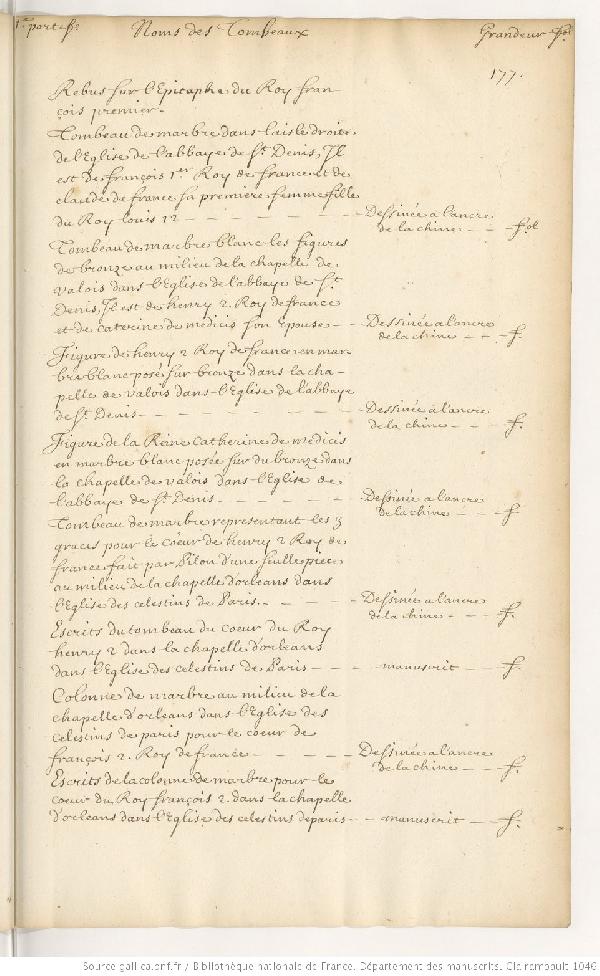 1re part fo. Noms des Tombeaux Grandeur fol
177.
Rebus sur l'Epitaphe du Roy fran
çois premier.
Tombeau de marbre dans l'aisle droite
de l'Eglise de l'abbaye de St. Denis, Il
est de françois 1er Roy de france et de
claude de france sa premiere femme fille
du Roy louis 12 - - - - - - - Dessinée a l'ancre
de la chine - - fol
Tombeau de marbre blanc les figures
de bronze au milieu de la chapelle de
valois dans l'Eglise de l'abbaye de St.
Denis, Il est de henry 2. Roy de france
et de caterine de medicis son Epouse - - Dessinée a l'ancre
de la chine - - - f.
Figure de henry 2 Roy de france en mar
bre blanc posé sur bronze dans la cha-
pelle de valois dans l'Eglise de l'abbaye
de St. Denis - - - - - - - Dessinée à l'ancre
de la chine - - f.
Figure de la Reine Catherine de medicis
en marbre blanc posée sur du bronze dans
la chapelle de valois dans l'Eglise de
l'abbaye de St. Denis - - - - - Dessinée a l'ancre
de la chine - - f
Tombeau de marbre representant les 3
graces pour le coeur de henry 2 Roy de
france fait par Pilon d'une seulle piece
au milieu de la chapelle d'orleans dans
l'Eglise des celestins de Paris. - - - - Dessinée a l'ancre
de la chine - - f.
Escrits du tombeau du coeur du Roy
henry 2 dans la chapelle d'orleans
dans l'Eglise des celestins de Paris - - - manuscrit - - f.
Colonne de marbre au milieu de la
chapelle d'orleans dans l'Eglise des
celestins de paris pour le coeur de
françois 2. Roy de france - - - - - Dessinée a l'ancre
de la chine - - f.
Escrits de la colonne de marbre pour le
coeur du Roy françois 2. dans la chapelle
d'orleans dans l'Eglise des celestins de paris - - manuscrit - - f.
Source gallica.bnf.fr / Bibliothèque nationale de France. Département des manuscrits. Clairambault 1046